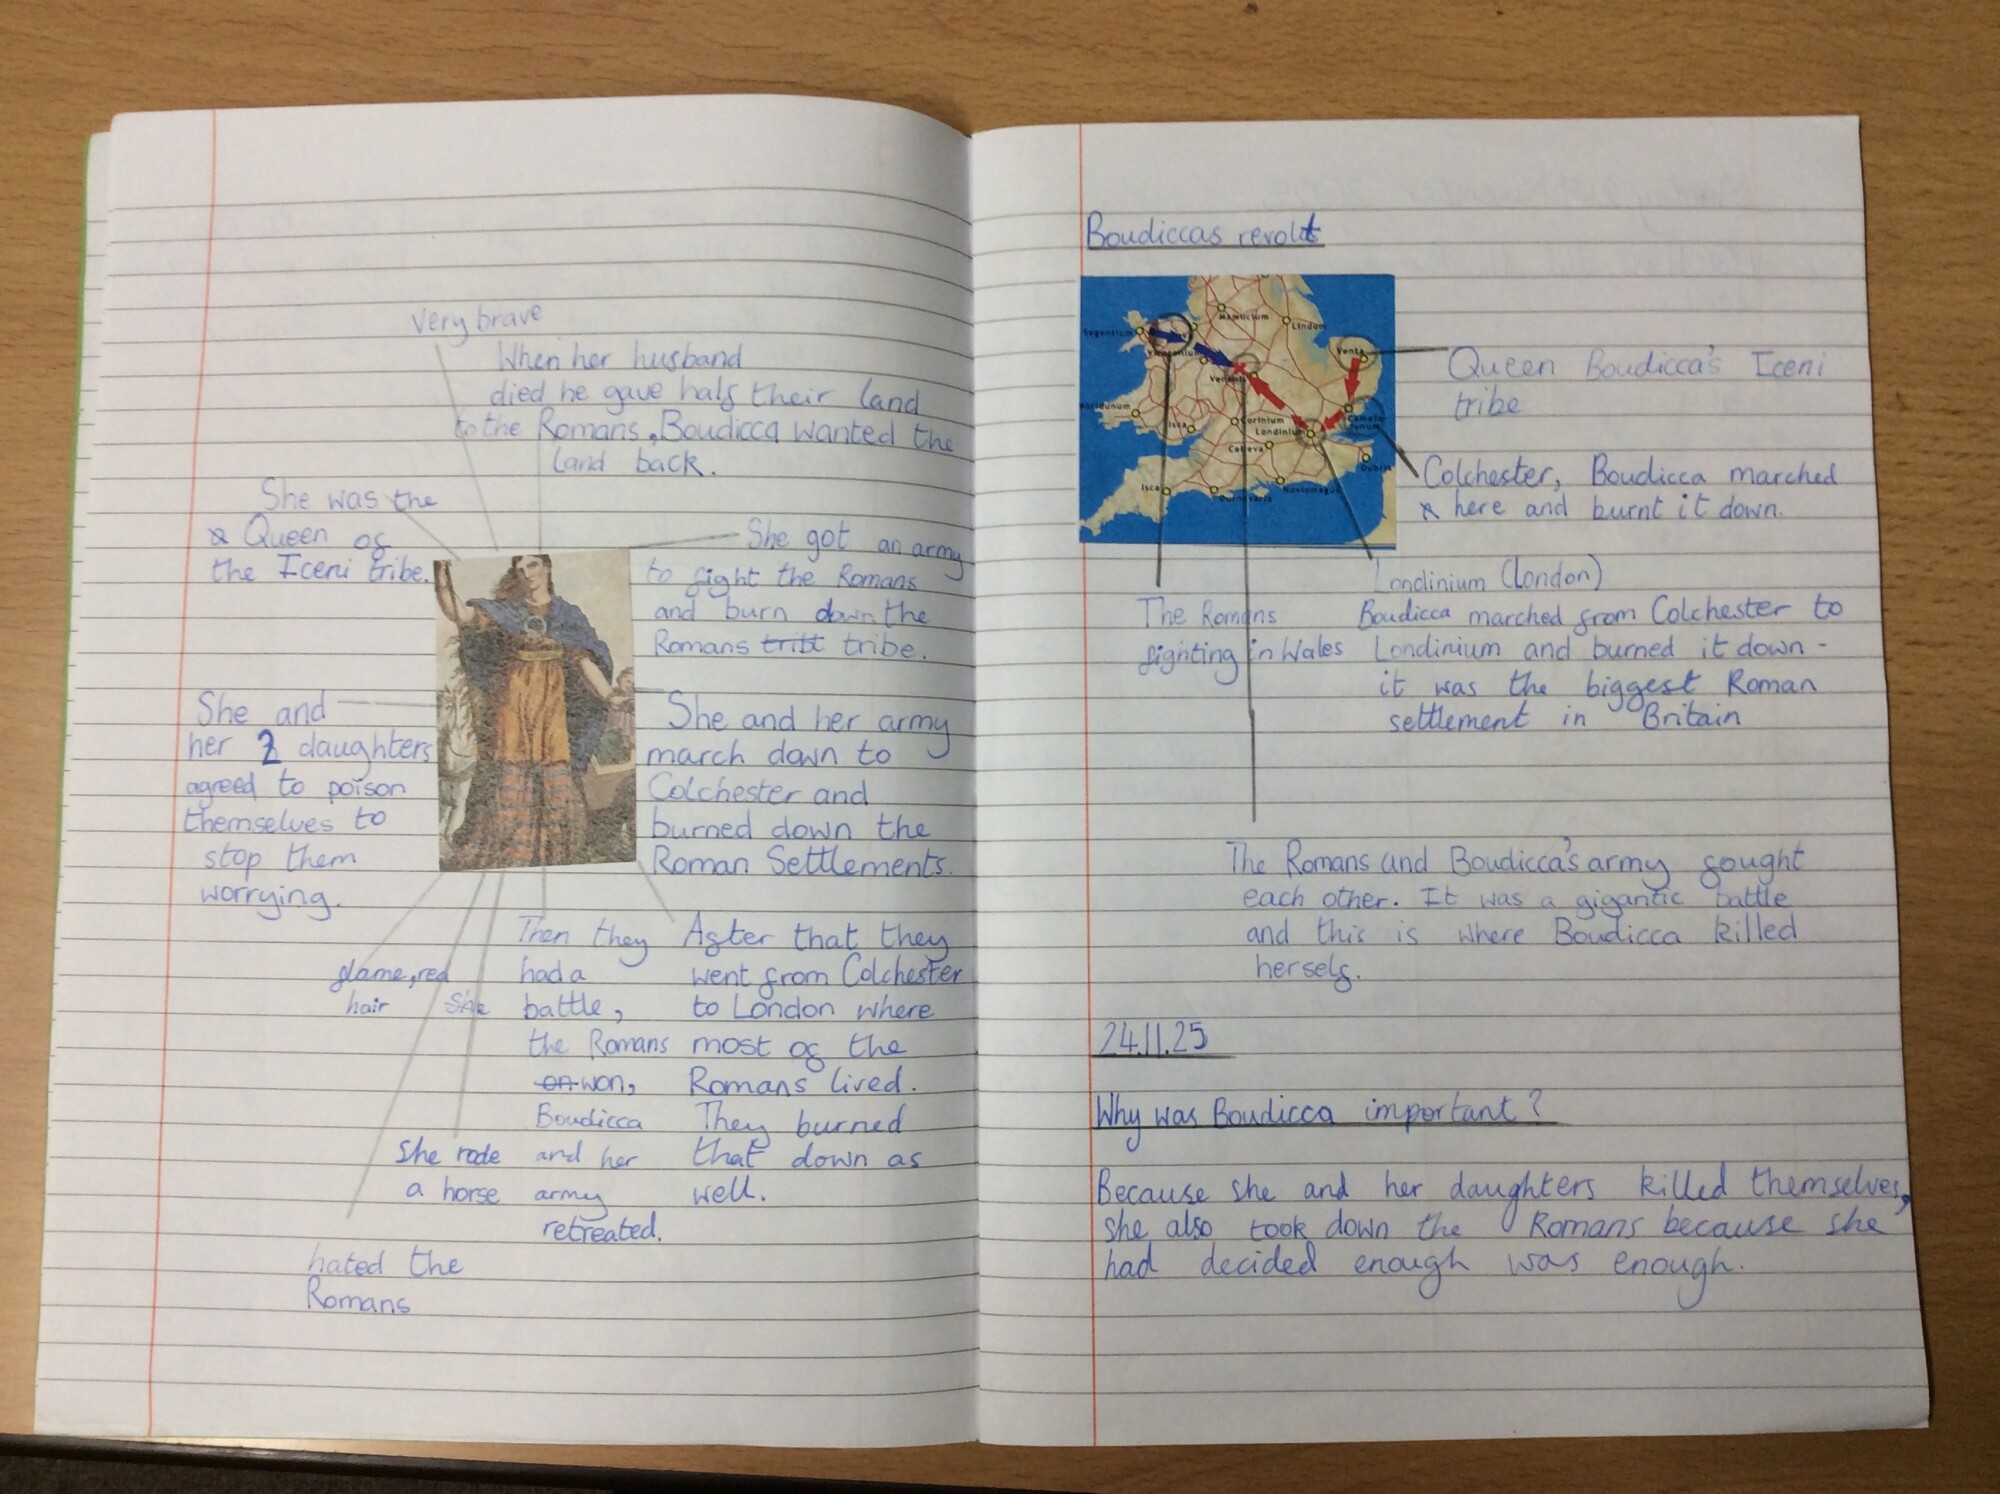 Very brave
When her husband
died he gave half their land
to the Romans, Boudicca wanted the
land back.
She was the
Queen of
the Iceni tribe.
She got an army
to fight the Romans
and burn down the
Romans tritt tribe.
She and
her 2 daughters
agreed to poison
themselves to
stop them
worrying.
She and her army
march down to
Colchester and
burned down the
Roman Settlements.
flame, red
hair
She
hated the
Romans
She rode
a horse
Then they
had a
battle,
the Romans
on won,
Boudicca
and her
army
retreated.
After that they
went from Colchester
to London where
most of the
Romans lived.
They burned
that down as
well.
Boudiccas revolt
Segontium
Mamucium
Lindum
Venta
Corinium
Londinium
Isca
Calleva
Dubris
Isca
Durnovaria
Noviomagus
Queen Boudicca's Iceni
tribe
Colchester, Boudicca marched
here and burnt it down.
Londinium (London)
Boudicca marched from Colchester to
Londinium and burned it down -
it was the biggest Roman
settlement in Britain
The Romans
fighting in Wales
The Romans and Boudicca's army fought
each other. It was a gigantic battle
and this is where Boudicca killed
herself.
24.11.25
Why was Boudicca important?
Because she and her daughters killed themselves,
she also took down the Romans because she
had decided enough was enough.